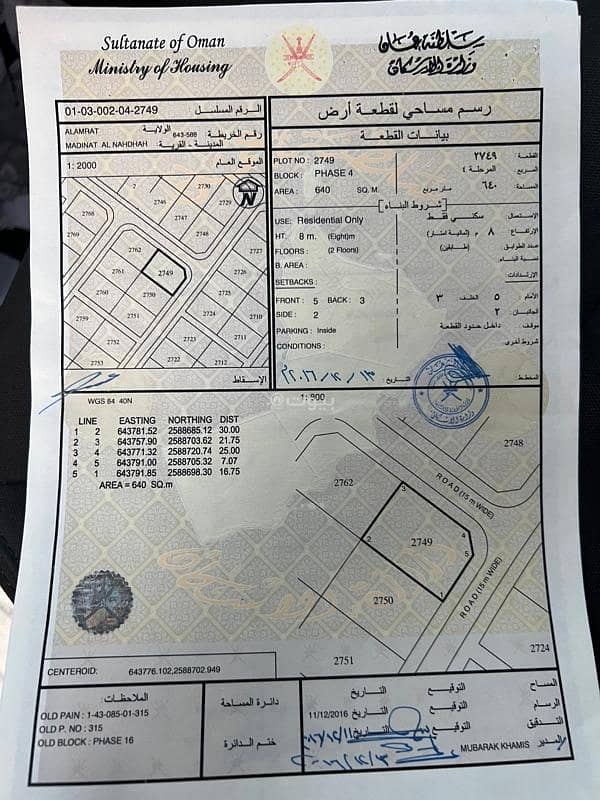 Sultanate of Oman
Ministry of Housing
سلطنة عمان
وزارة الإسكان
01-03-002-04-2749 الرقم المسلسل :
ALAMRAT الولاية
643-588 رقم الخريطة :
MADINAT AL NAHDHAH المدينة - القرية :
1: 2000 الموقع العام
2730
2729
2746
2747
2748
2768
2769
2762
2761
2749
2750
2727
2760
2759
2751
2752
2753
2724
2722
2712
2711
2710
N
الإسقاط
رسم مساحي لقطعة أرض
بيانات القطعة
PLOT NO : 2749 ٢٧٤٩ القطعة
BLOCK : PHASE 4 المرحلة ٤ المربع
AREA : 640 SQ. M. متر مربع ٦٤٠ المساحة
شروط البناء
USE: Residential Only سكني فقط الإستعمال
HT. 8 m. (Eight)m ٨ م (ثمانية امتار) الإرتفاع
FLOORS : (2 Floors) (طابقين) عدد الطوابق
B. AREA : نسبة البناء
SETBACKS: الإرتدادات:
FRONT : 5 BACK : 3 ٣ الخلف ٥ الأمام :
SIDE : 2 ٢ الجانبان :
PARKING : Inside داخل حدود القطعة موقف:
CONDITIONS : شروط أخرى
التاريخ :
المخطط
WGS 84 40N
1: 800
LINE EASTING NORTHING DIST
1 2 643781.52 2588685.12 30.00
2 3 643757.90 2588703.62 21.75
3 4 643771.32 2588720.74 25.00
4 5 643791.00 2588705.32 7.07
5 1 643791.85 2588698.30 16.75
AREA = 640 SQ.m
2748
2762
ROAD (15 m WIDE)
3
2749
4
5
2
1
ROAD (15 m WIDE)
2750
2751
2724
CENTEROID: 643776.102,2588702.949
الملاحظات:
OLD PAIN : 1-43-085-01-315
OLD P. NO : 315
OLD BLOCK : PHASE 16
دائرة المساحة
ختم الدائرة
التاريخ التوقيع المساح
11/12/2016 التاريخ التوقيع الرسام
التاريخ التوقيع التدقيق
MUBARAK KHAMIS المدير